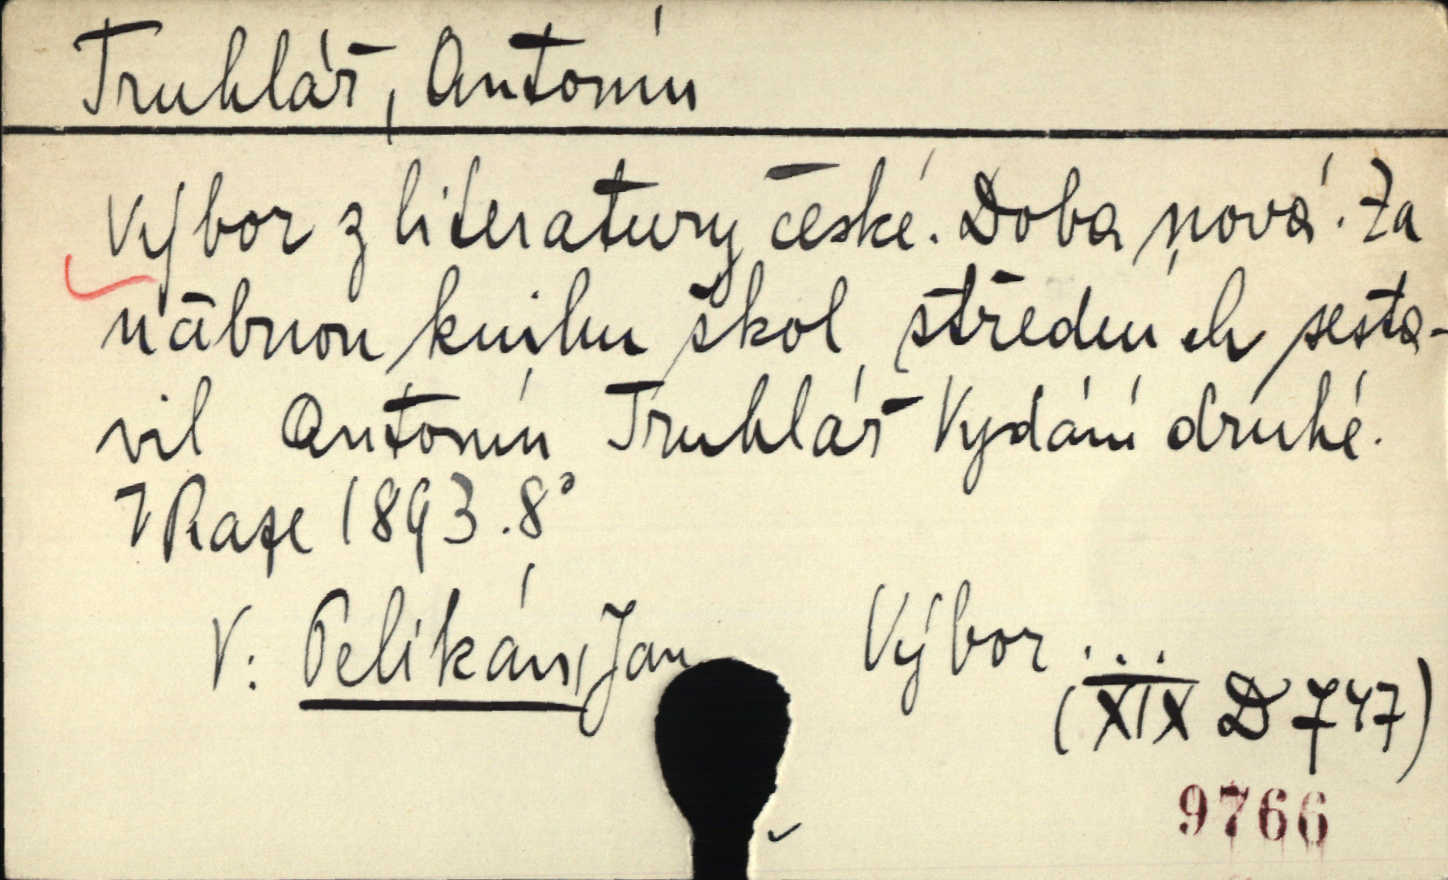 Truhlář, Antonín
Výbor z literatury české. Doba nová. Za
učebnou knihu škol středních sesta-
vil Antonín Truhlář Vydání druhé.
V Praze 1893. 8°
V: Pelikán, Jan Výbor...
(XIX D 747)
9766